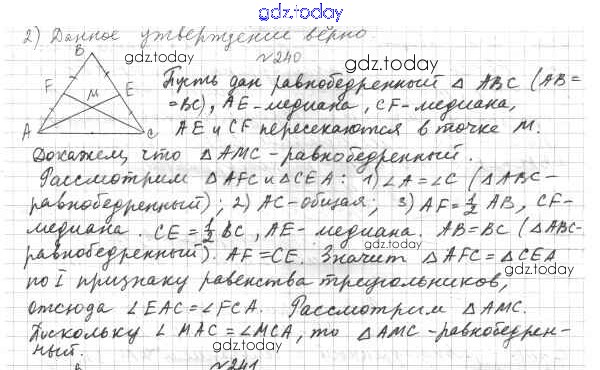 gdz.today
2) Данное утверждение верно
gdz.today
№240
gdz.today
B
F
M
E
A
C
Пусть дан равнобедренный △ ABC (AB=
=BC), AE-медиана, CF-медиана,
AE и CF пересекаются в точке M.
Докажем, что △AMC-равнобедренный.
Рассмотрим △AFC и △CEA: 1) ∠A=∠C (△ABC-
равнобедренный); 2) AC-общая; 3) AF=½ AB, CF-
медиана. CE=½ BC, AE- медиана. AB=BC (△ABC-
gdz.today
равнобедренный). AF=CE. Значит △AFC=△CEA
gdz.today
по I признаку равенства треугольников,
отсюда ∠EAC=∠FCA. Рассмотрим △AMC.
Поскольку ∠MAC=∠MCA, то △AMC-равнобедрен-
gdz.today
ный.
№241